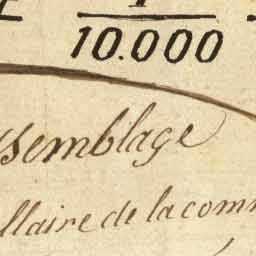 1
10.000
ssemblage
llaire de la comm